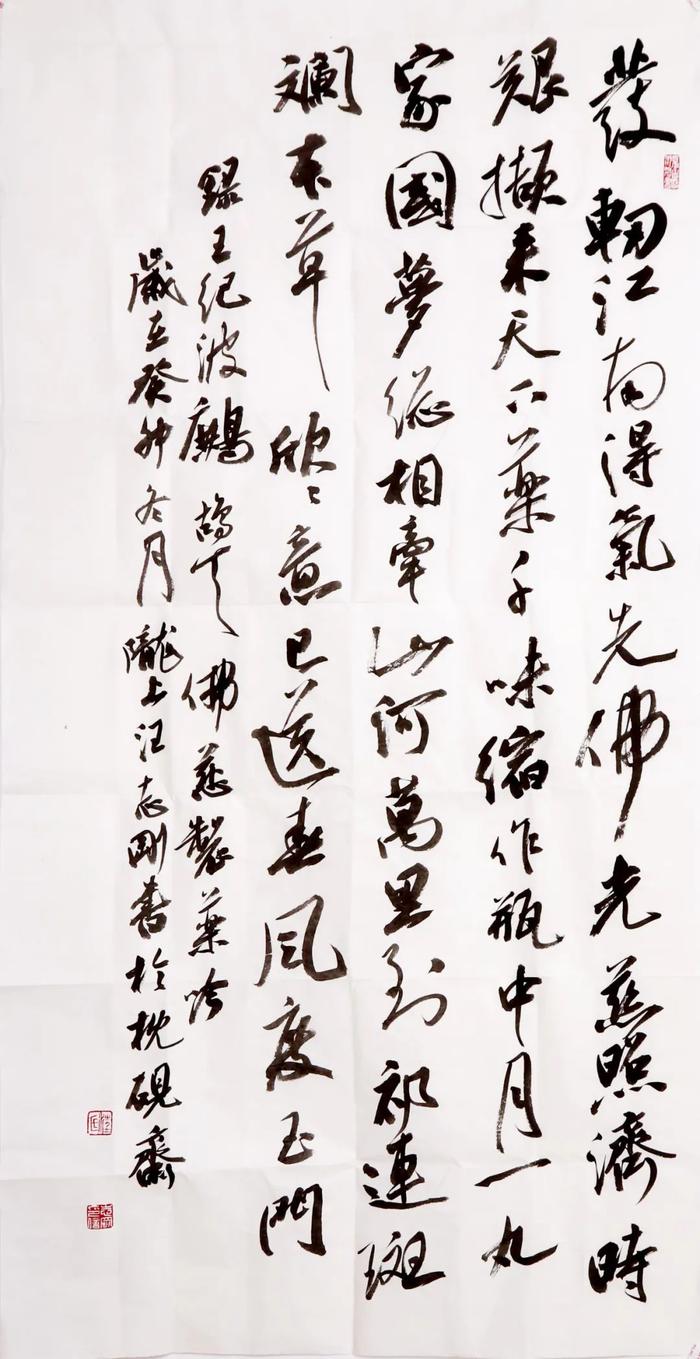 發軔江南得氣先佛光慈照濟時
艱擷来天下藥千味縮作瓶中月一丸
家國夢總相牽山河萬里到祁連斑
斕本草欣〻意已送春風度玉門
録王纪波鷓鴣天佛慈製藥吟
歲在癸卯冬月隴上汪志剛書於枕硯齋